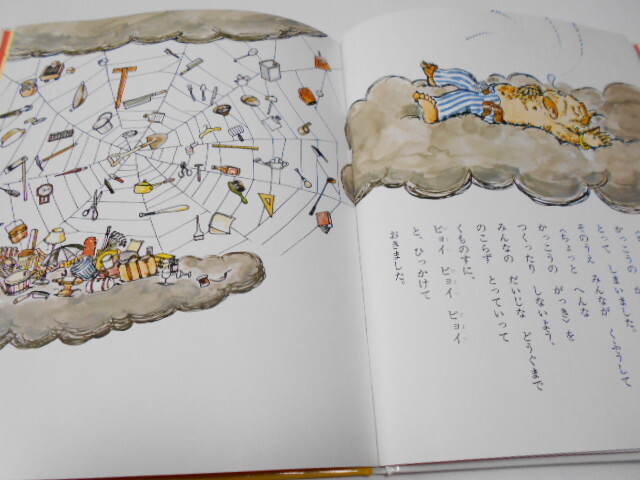 かっこうの が
とって しまいました。
そのうえ みんなが くふうして
〈ちょっと へんな
かっこうの がっき〉を
つくったり しないよう、
みんなの だいじな どうぐまで
のこらず とっていって
くものすに、
ピョイ ピョイ ピョイ
と、ひっかけて
おきました。